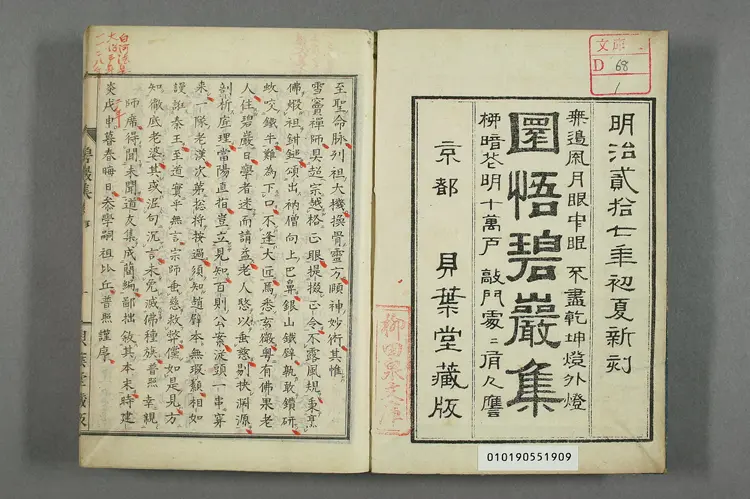 文庫
D 68
1
明治貳拾七年初夏新刻
無邉風月眼中眼 不盡乾坤燈外燈
柳暗花明十萬戸 敲門處〻有人譍
圜悟碧巖集
京都 貝葉堂藏版
010190551909
至聖命脉列祖大機換骨靈方頤神妙術其惟
雪竇禪師具超宗越格正眼提掇正令不露風規秉烹
佛煆祖鉗鎚頌出衲僧向上巴鼻銀山鐵壁孰敢鑽研
蚊咬鐵牛難為下口不逢大匠焉悉玄微粤有佛果老
人住碧巖日學者迷而請益老人愍以垂慈剔抉淵源
剖析底理當陽直指豈立見知百則公案從頭一串穿
來一隊老漢次第總將按過須知趙璧本無瑕纇相如
謾誑秦王至道實乎無言宗師垂慈救弊儻如是見方
知徹底老婆其或泥句沉言未免滅佛種族普照幸親
師席得聞未聞道友集成簡編鄙拙敘其本末時建
炎戊申暮春晦日叅學嗣祖比丘普照謹序